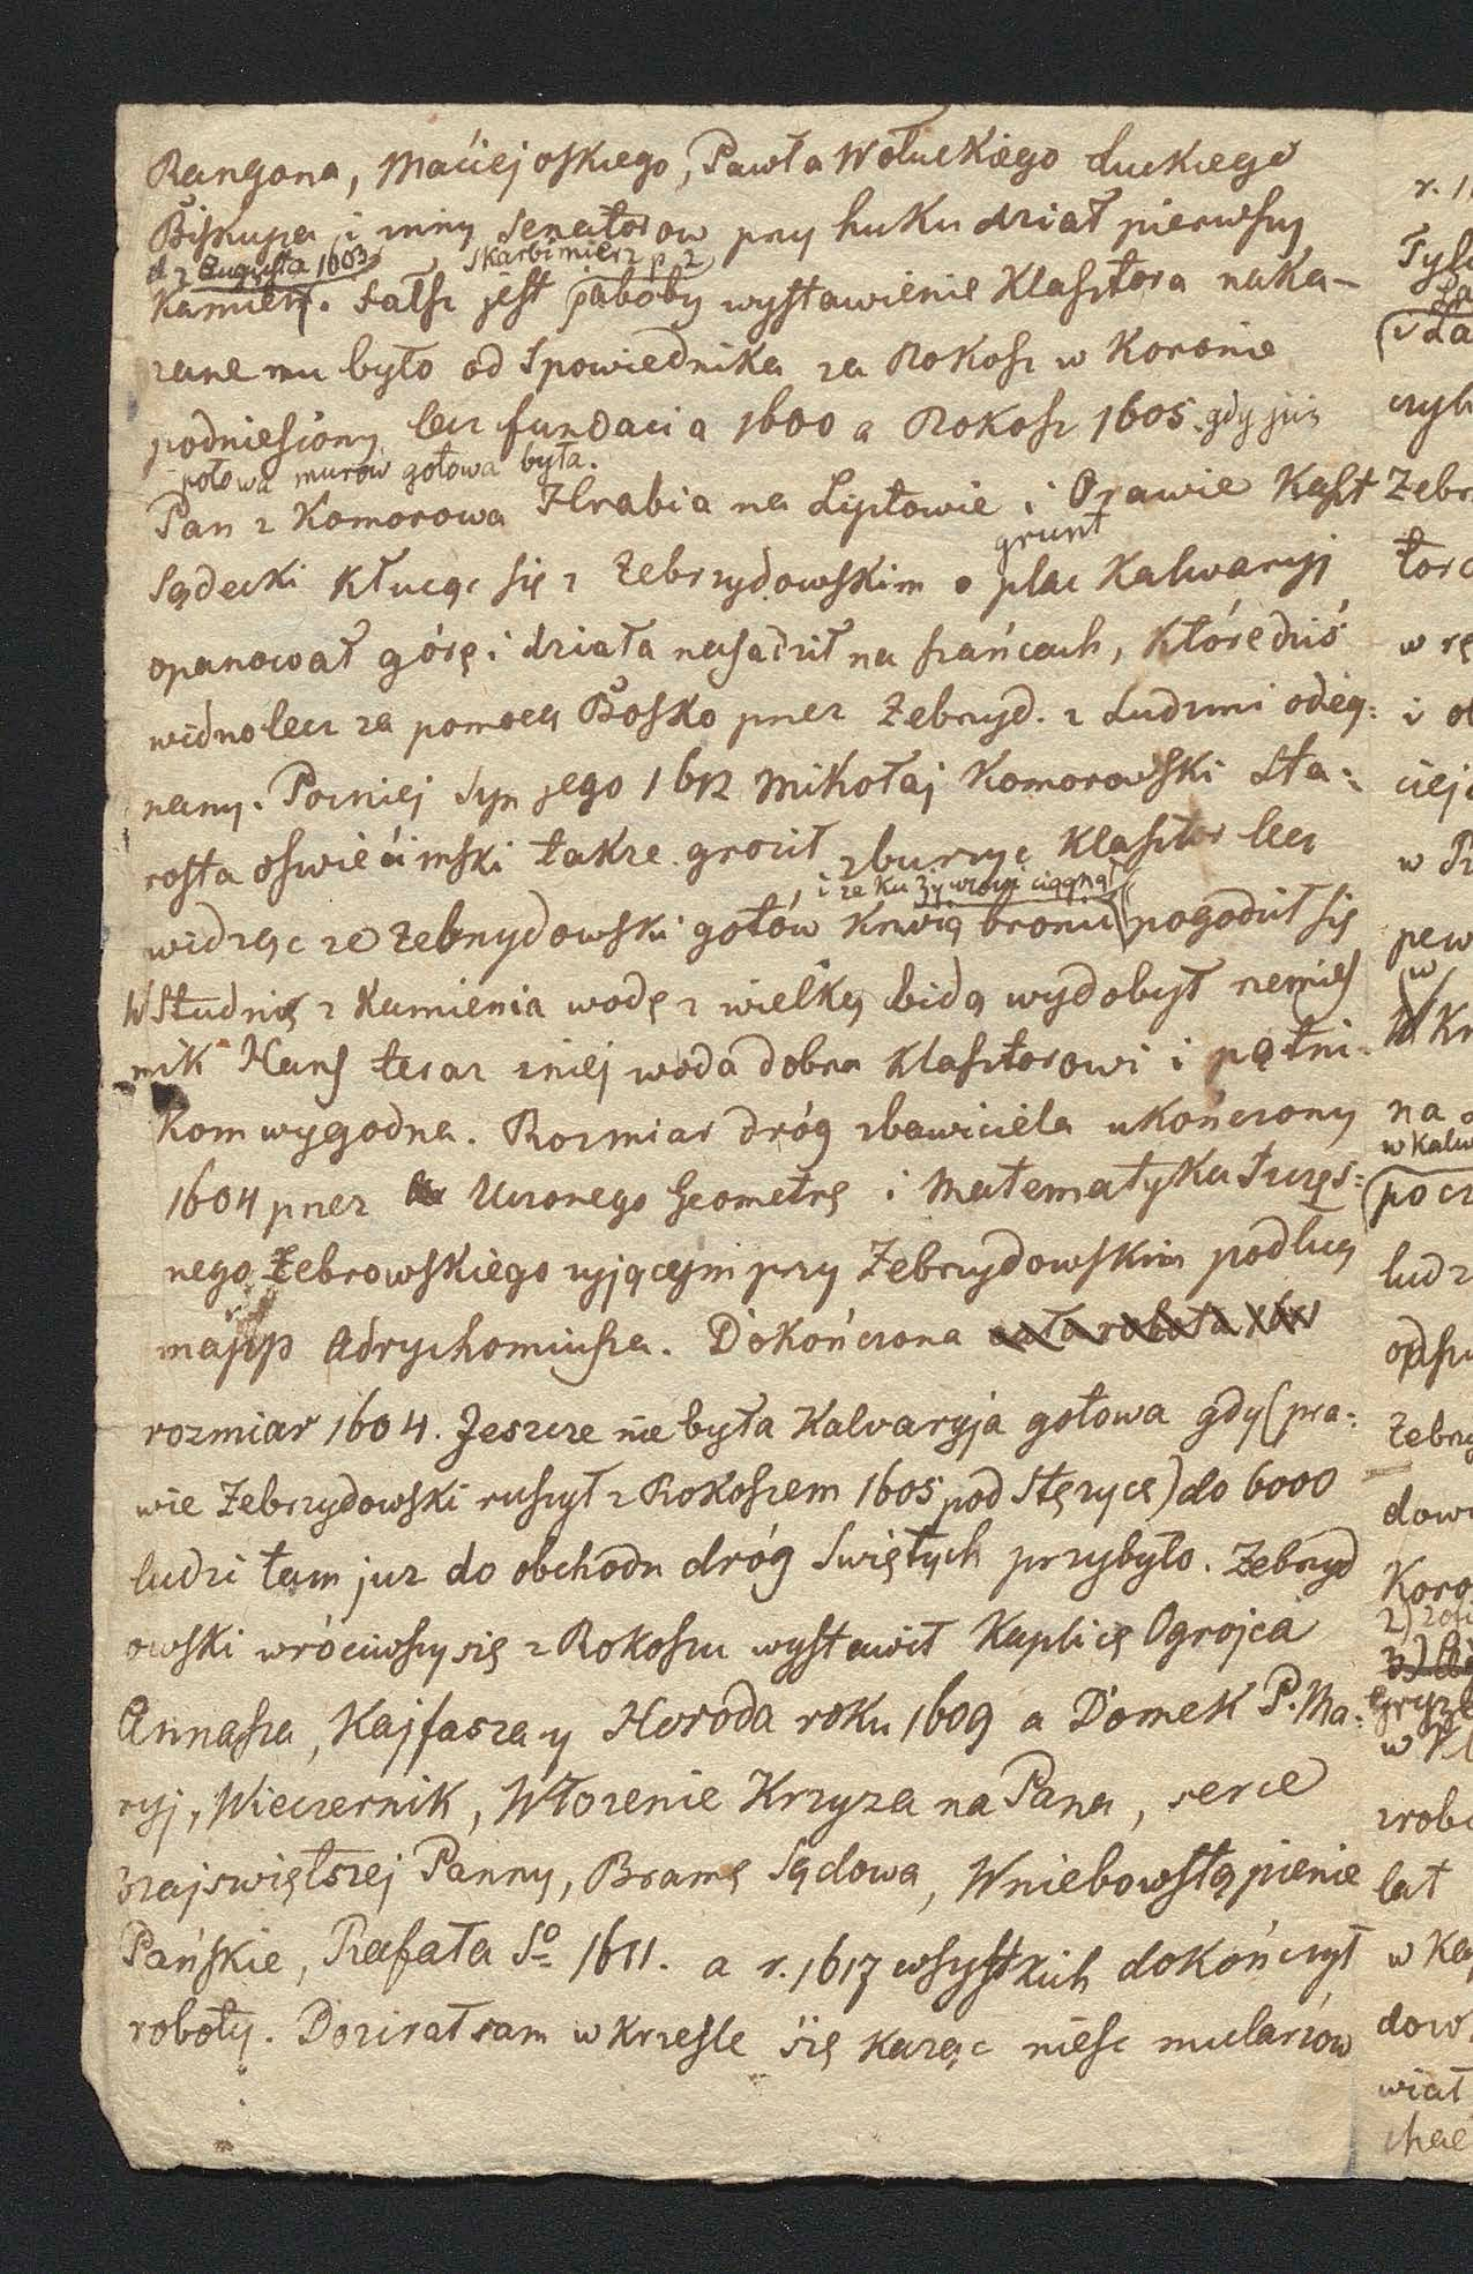 Rangona, Maciejoskiego, Pawła Wołuckiego łuckiego
Biskupa i inny Senatorow przy huku dział pierwszy
d 7 Augusta 1603 Skarbimierz p. 2
Kamień. Fałsz jest jakoby wystawienie Klasztora naka-
zane mu było od Spowiednika za Rokosz w Koronie
podniesiony lecz fundacia 1600 a Rokosz 1605. gdy już
połowa murów gotowa była.
Pan z Komorowa Hrabia na Liptowie i Orawie Kaszt
grunt
Sądecki kłucąc się z Zebrzydowskim o plac Kalwaryj
opanował górę i działa nasadził na szańcach, które dziś
widno lecz za pomocą Bosko przez Zebrzyd. z Ludzmi odeg=
nany. Pozniej Syn jego 1612 Mikołaj Komorowski Sta=
rosta oswiecimski takze groził zburzyć Klasztor lecz
i ze ku Zywcowi ciągnął
widząc ze Zebrzydowski gotów krwią bronić pogodził się
W Studnię z Kamienia wodę z wielką bidą wydobył rzemies
nik Hans teraz zniej woda dobra Klasztorowi i pątni=
kom wygodna. Rozmiar dróg zbawiciela ukończony
1604 przez Uczonego Geometrę i Matematyka Szczęs=
nego Żebrowskiego zyjącym przy Zebrzydowskim podług
mapp Adrychomiusza. Dokończona cała robota
rozmiar 1604. Jeszcze nie była Kalwaryja gotowa gdy (pra=
wie Zebrzydowski ruszył z Rokoszem 1605 pod Stęzycę) do 6000
ludzi tam juz do obchodu dróg Swiętych przybyło. Zebrzyd
owski wróciwszy się z Rokoszu wystawił Kaplicę Ogrojca
Annasza, Kajfasza y Heroda roku 1609 a Domek P. Ma=
ryj, Wieczernik, Włozenie Krzyza na Pana, serce
Najswiętszej Panny, Bramę Sądowa, Wniebowstąpienie
Pańskie, Rafała So 1611. a r. 1617 wszystkich dokończył
roboty. Dozirał sam w krzesle się kaząc niesc mularzów